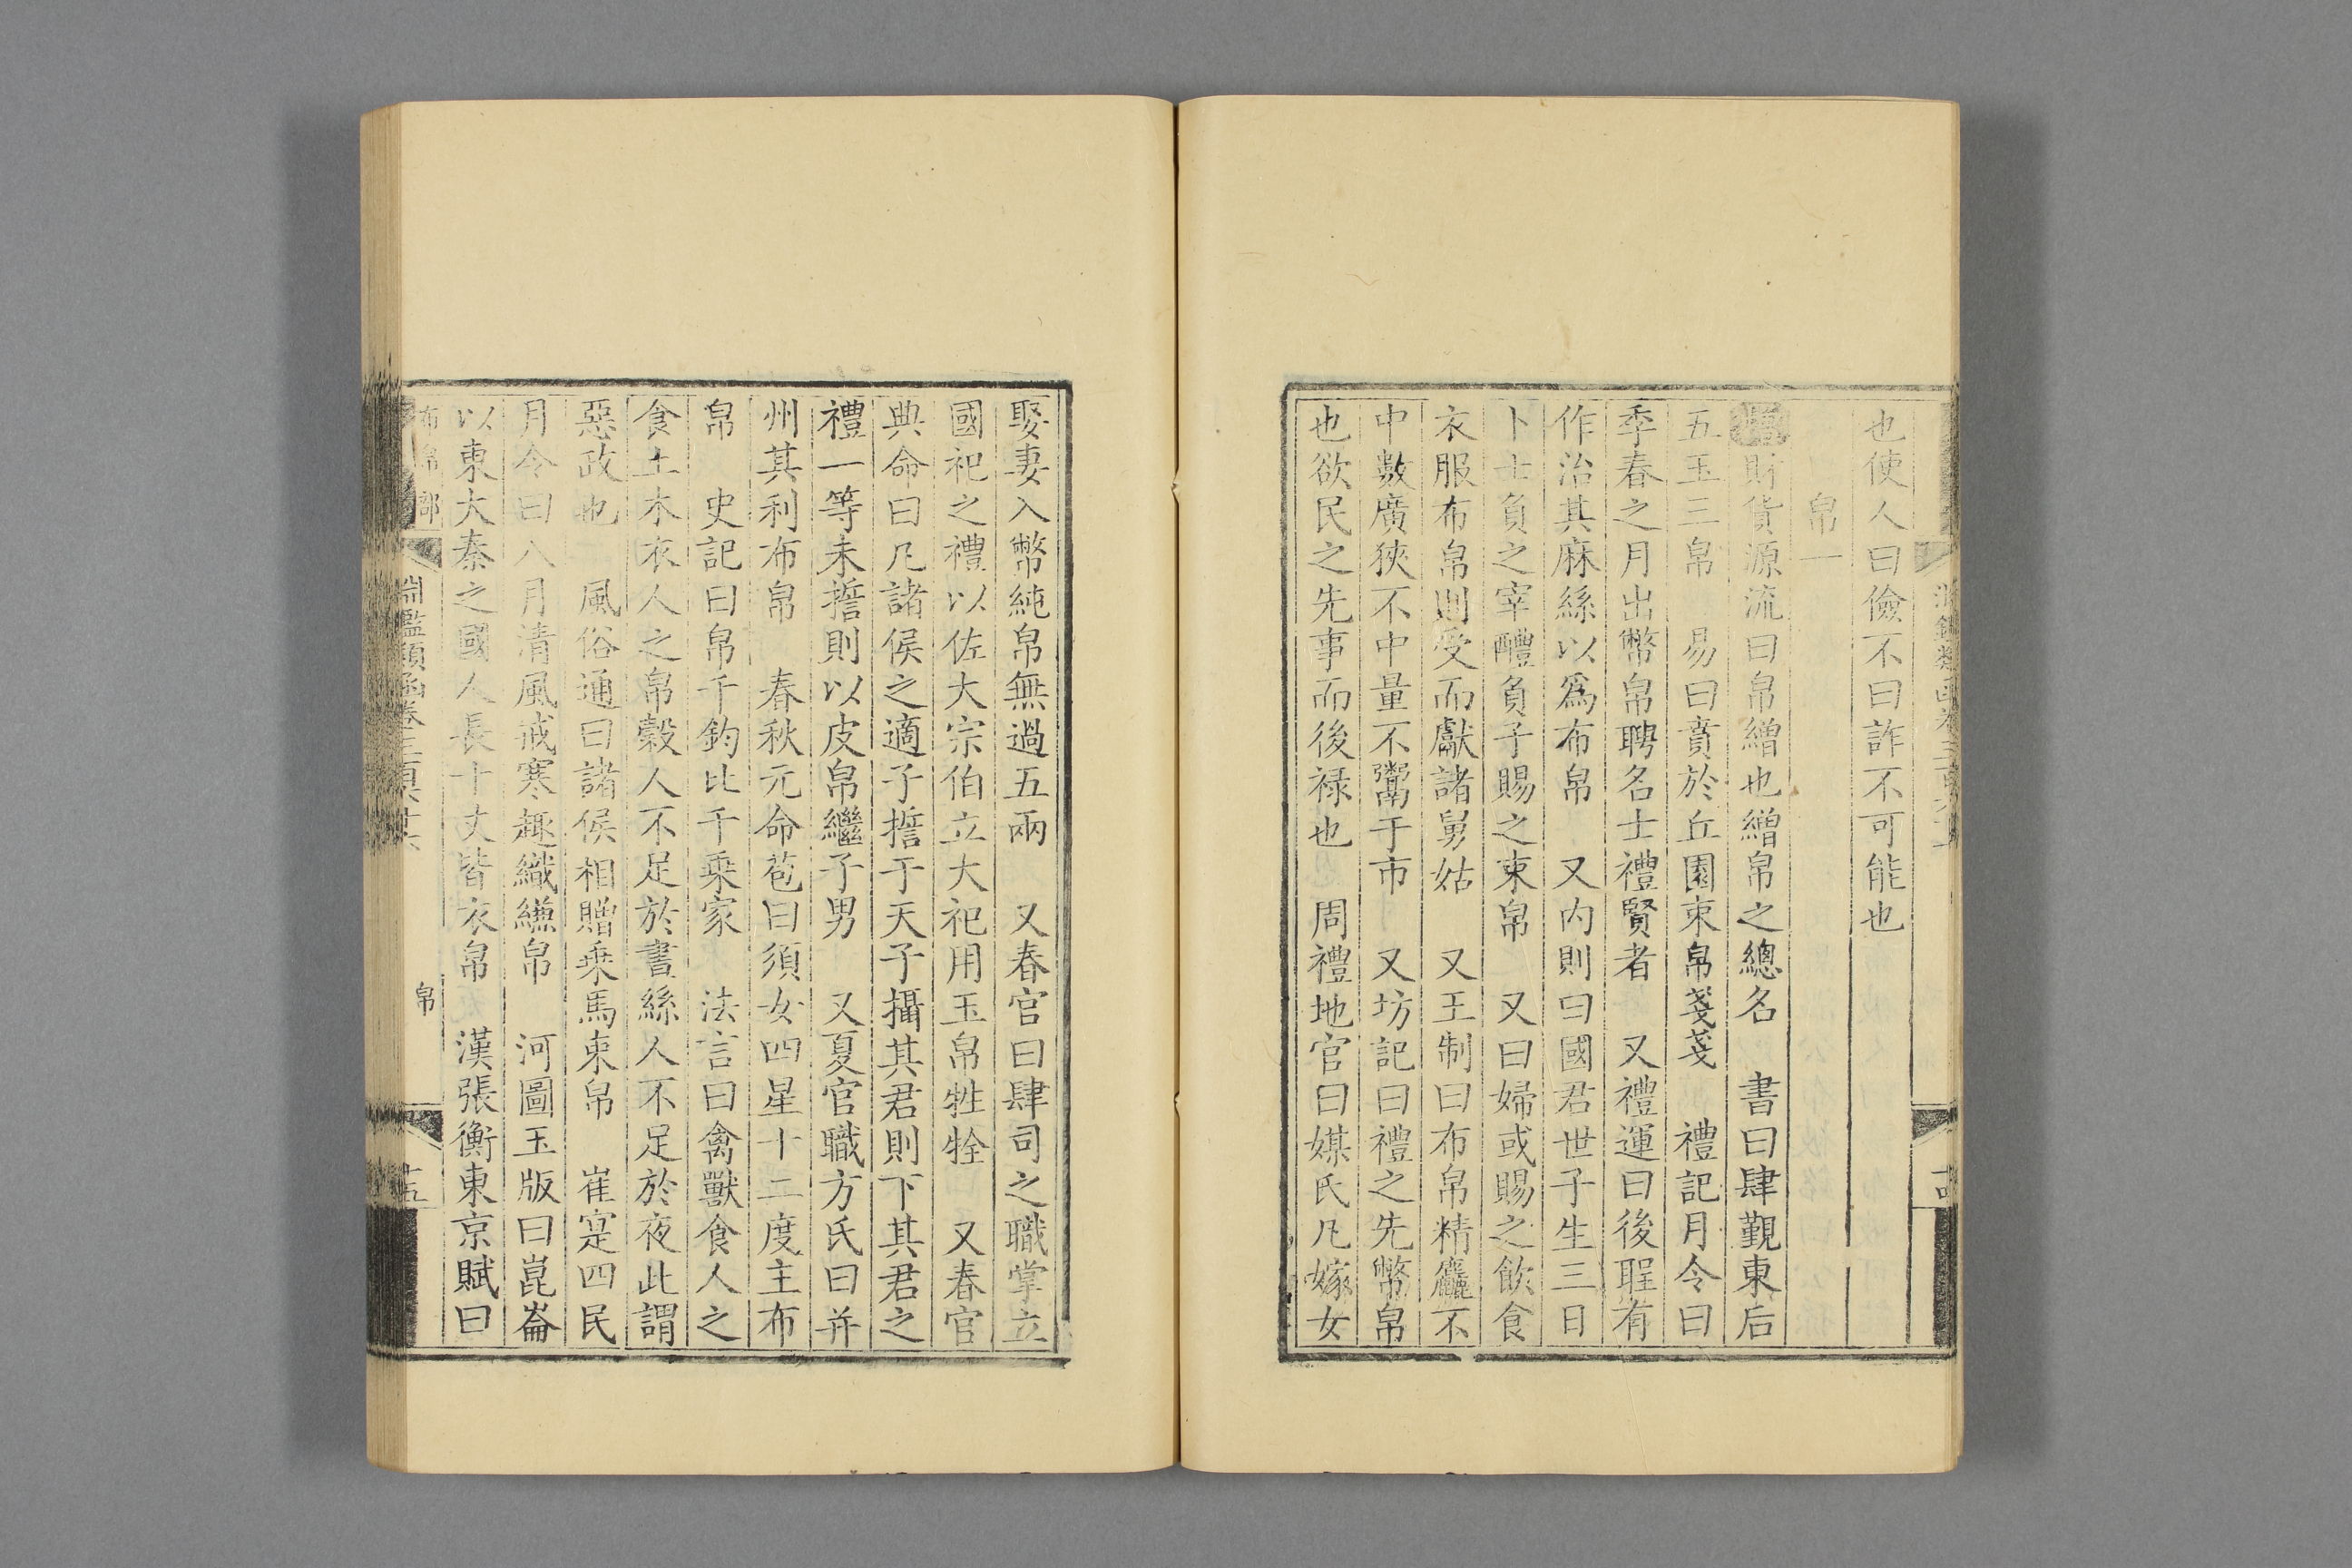 也使人曰儉不曰詐不可能也
帛一
增財貨源流曰帛繒也繒帛之總名　書曰肆覲東后
五玉三帛　易曰賁於丘園束帛戔戔　禮記月令曰
季春之月出幣帛聘名士禮賢者　又禮運曰後聖有
作治其麻絲以爲布帛　又内則曰國君世子生三日
卜士負之宰醴負子賜之束帛　又曰婦或賜之飲食
衣服布帛則受而獻諸舅姑　又王制曰布帛精麤不
中數廣狹不中量不鬻于市　又坊記曰禮之先幣帛
也欲民之先事而後禄也　周禮地官曰媒氏凡嫁女
娶妻入幣純帛無過五兩　又春官曰肆司之職掌立
國祀之禮以佐大宗伯立大祀用玉帛牲牷　又春官
典命曰凡諸侯之適子誓于天子攝其君則下其君之
禮一等未誓則以皮帛繼子男　又夏官職方氏曰并
州其利布帛　春秋元命苞曰須女四星十二度主布
帛　史記曰帛千鈞比千乘家　法言曰禽獸食人之
食土木衣人之帛穀人不足於晝絲人不足於夜此謂
惡政也　風俗通曰諸侯相贈乘馬束帛　崔寔四民
月令曰八月清風戒寒趣織縑帛　河圖玉版曰崑崙
以東大秦之國人長十丈皆衣帛　漢張衡東京賦曰
布帛部　淵鑑類函卷三百六十六　帛　十五